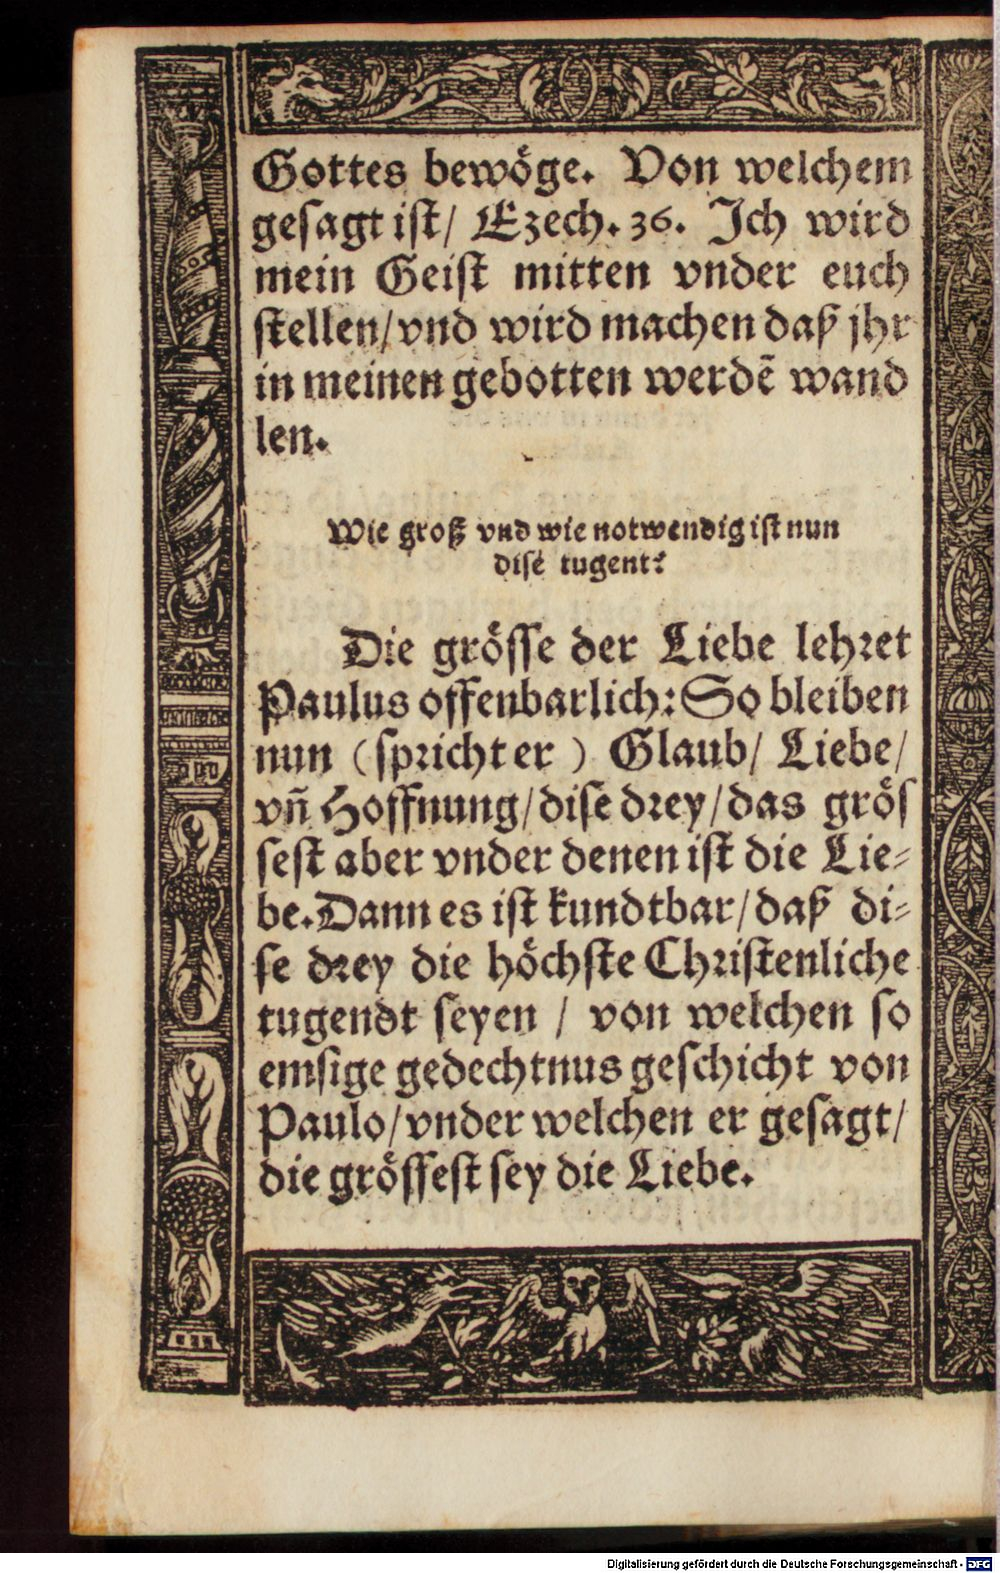 Gottes bewöge. Von welchem
gesagt ist/ Ezech. 36. Ich wird
mein Geist mitten vnder euch
stellen/vnd wird machen daß jhr
in meinen gebotten werdẽ wand
len.
Wie groß vnd wie notwendig ist nun
dise tugent?
Die grösse der Liebe lehret
Paulus offenbarlich: So bleiben
nun (spricht er) Glaub/ Liebe/
vñ Hoffnung/dise drey/das grös
sest aber vnder denen ist die Lie-
be. Dann es ist kundtbar/daß di-
se drey die höchste Christenliche
tugendt seyen / von welchen so
emsige gedechtnus geschicht von
Paulo/vnder welchen er gesagt/
die grössest sey die Liebe.
Digitalisierung gefördert durch die Deutsche Forschungsgemeinschaft - DFG